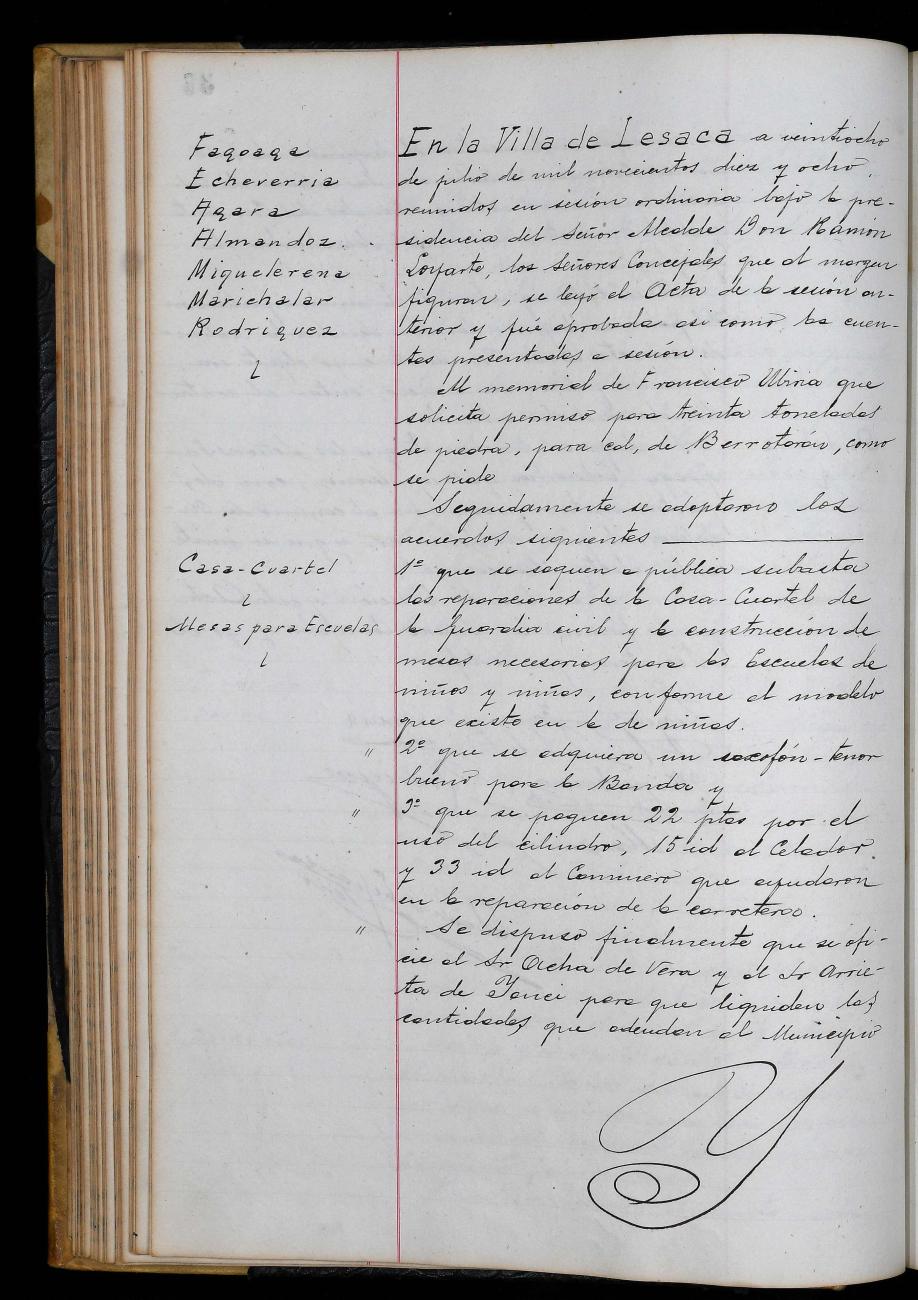 Fagoaga
Echeverria
Agara
Almandoz.
Miquelerena
Marichalar
Rodriguez
En la Villa de Lesaca a veintiocho
de julio de mil novecientos diez y ocho,
reunidos en sesión ordinaria bajo la pre-
sidencia del Señor Alcalde Don Ramón
Loyarte, los Señores Concejales que al margen
figuran, se leyó el Acta de la sesión an-
terior y fué aprobada asi como las cuen-
tas presentadas a sesión.
Al memorial de Francisco Ubiria que
solicita permiso para treinta toneladas
de piedra, para cal, de Berrotarán, como
se pide
Seguidamente se adoptaron los
acuerdos siguientes
Casa-Cuartel
Mesas para Escuelas
1º que se saquen a pública subasta
las reparaciones de la Casa-Cuartel de
la Guardia civil y la construcción de
mesas necesarias para las Escuelas de
niños y niñas, conforme al modelo
que existe en la de niñas.
" 2º que se adquiera un saxofón-tenor
bueno para la Banda y
" 3º que se paguen 22 ptas por el
uso del cilindro, 15 id al Celador
y 33 id al Caminero que ayudaron
en la reparación de la carretera.
" Se dispuso finalmente que se ofi-
cie al Sr Ocha de Vera y al Sr Arrie-
ta de Yanci para que liquiden las
cantidades que adeudan al Municipio